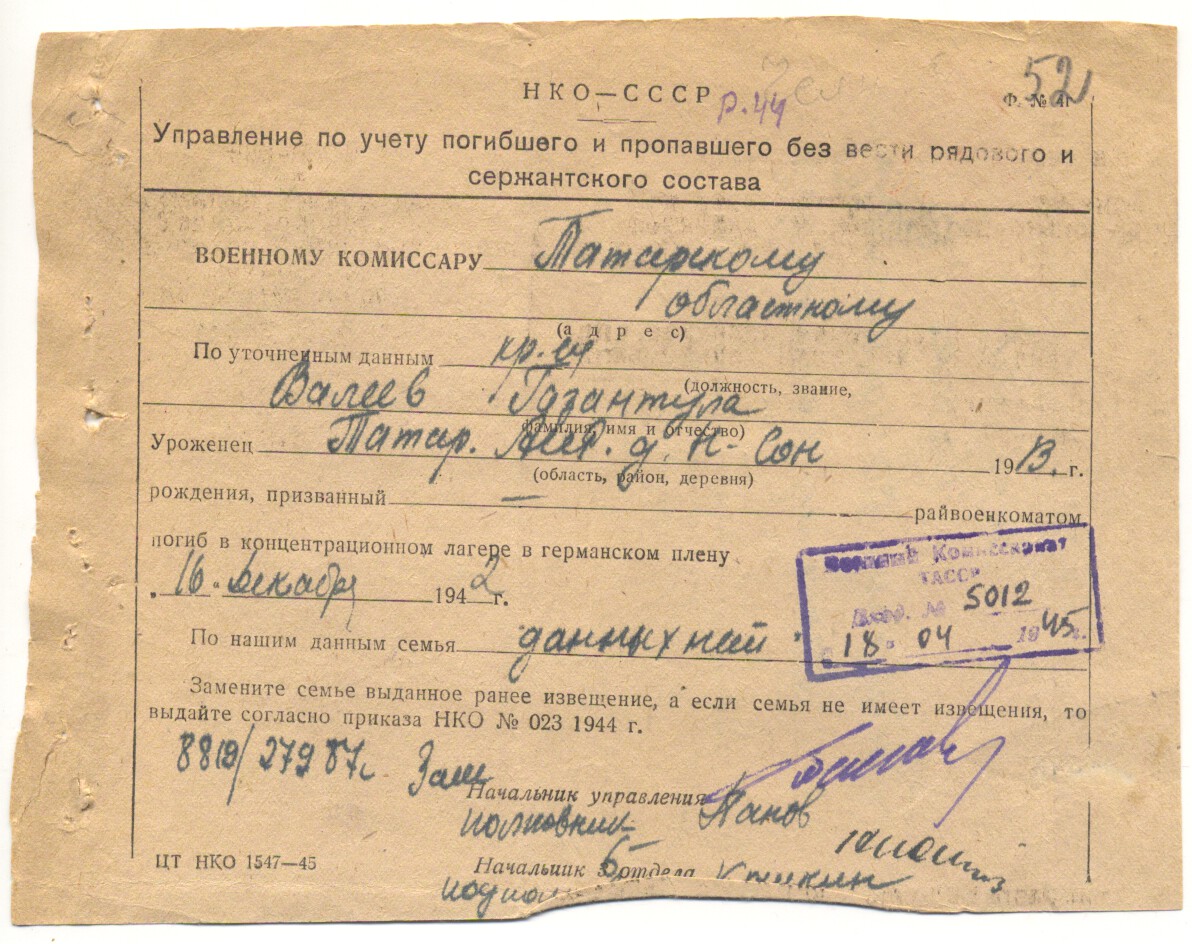 52
НКО—СССР
р.44
Ф. № 4
Управление по учету погибшего и пропавшего без вести рядового и
сержантского состава
ВОЕННОМУ КОМИССАРУ Татарскому
областному
(адрес)
По уточненным данным кр-ец
(должность, звание,
Валеев
фамилия, имя и отчество)
Уроженец Татар. д. Н- Сон 1913. г.
(область, район, деревня)
рождения, призванный — райвоенкоматом
погиб в концентрационном лагере в германском плену
„16“ декабря 1942 г.
Военный Комиссариат
ТАССР
Вход. № 5012
18 04 1945 г.
По нашим данным семья данных нет
Замените семье выданное ранее извещение, а если семья не имеет извещения, то
выдайте согласно приказа НКО № 023 1944 г.
8819/27987с
Зам
Начальник управления Панов
полковник
ЦТ НКО 1547—45
Начальник 5 отдела